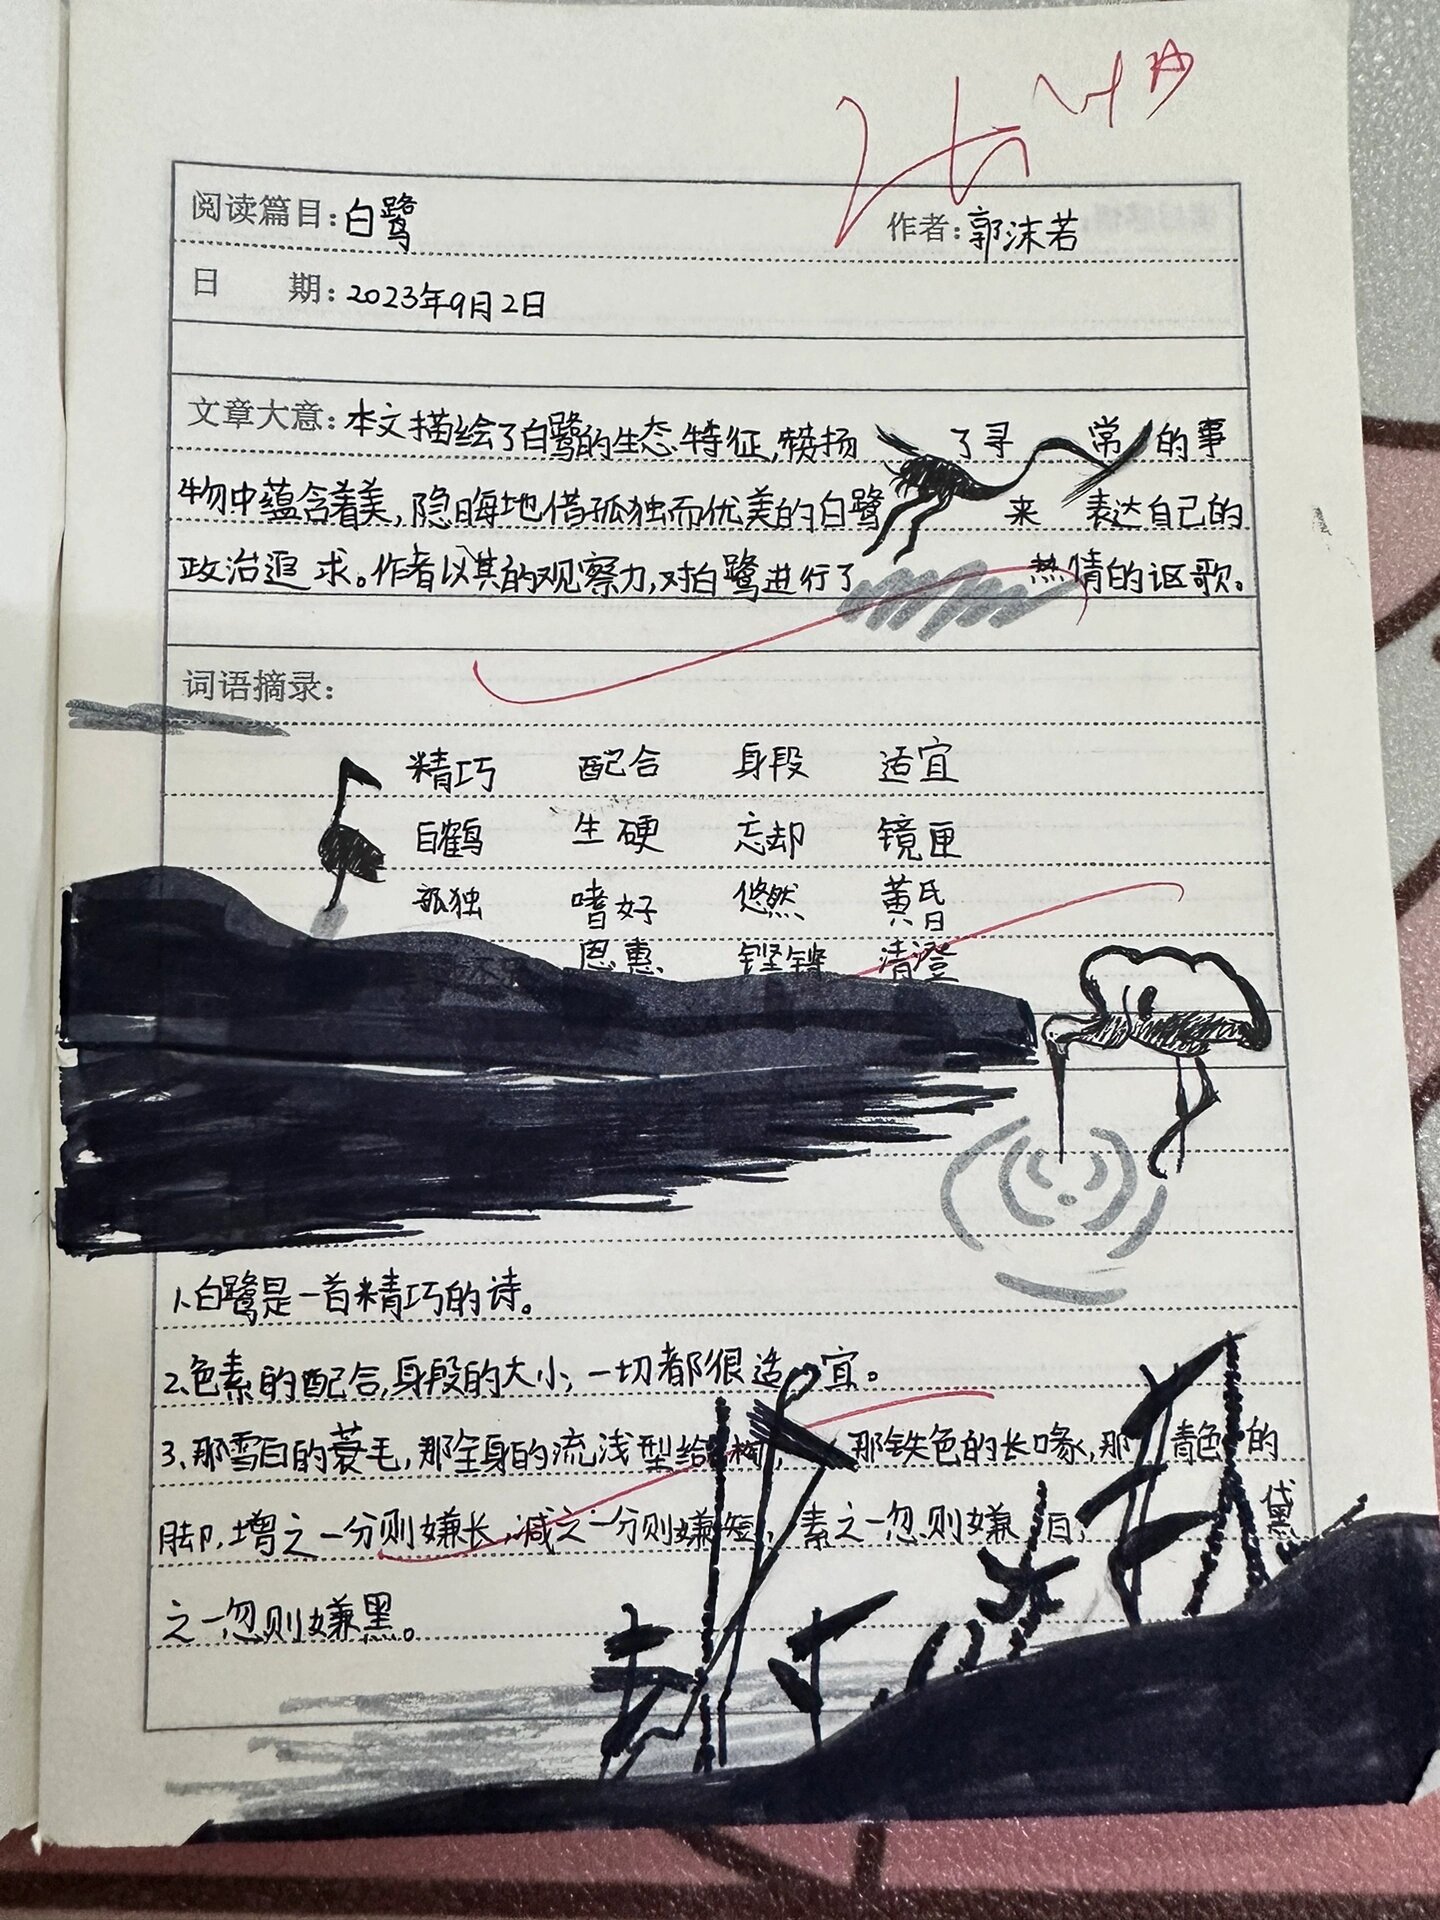 阅读篇目：白鹭 作者：郭沫若
日 期：2023年9月2日
文章大意：本文描绘了白鹭的生态特征,颂扬了寻常的事
物中蕴含着美,隐晦地借孤独而优美的白鹭来表达自己的
政治追求。作者以其的观察力,对白鹭进行了热情的讴歌。
词语摘录：
精巧 配合 身段 适宜
白鹤 生硬 忘却 镜匣
孤独 嗜好 悠然 黄昏
恩惠 铿锵 清澄
1.白鹭是一首精巧的诗。
2.色素的配合,身段的大小,一切都很适宜。
3.那雪白的蓑毛,那全身的流浅型结构,那铁色的长喙,那青色的
脚,增之一分则嫌长,减之一分则嫌短,素之一忽则嫌白,黛
之一忽则嫌黑。